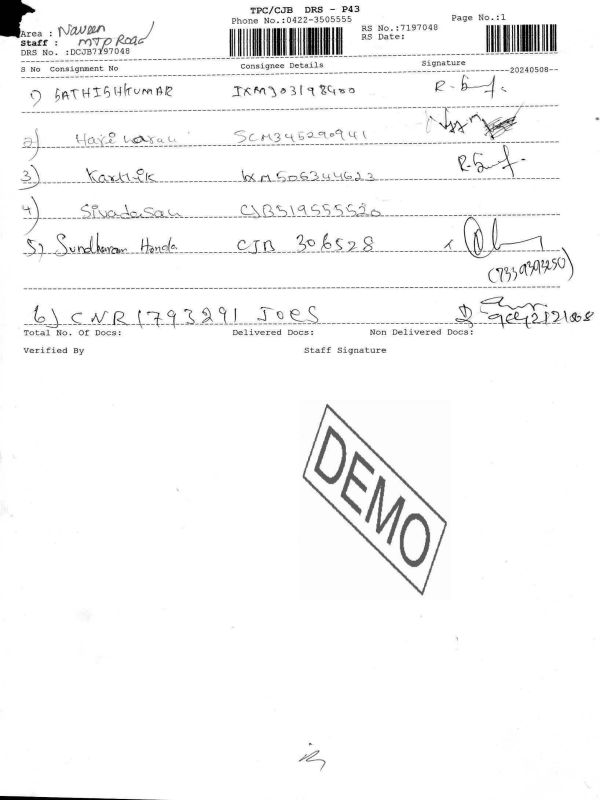 TPC/CJB DRS - P43
Phone No.:0422-3505555 Page No.:1
Area : Naveen RS No.:7197048
Staff : MTP Road RS Date:
DRS No. :DCJB7197048
S No Consignment No Consignee Details Signature
20240508
1) SATHISHKUMAR IXM303198400
2) Hariharan SCM345290941
3) Karthik IXM506344623
4) Sivadasan CJB519555520
5) Sundharam Honda CJB 306528
(7339393250)
6) CNR17932291 Joes
Total No. Of Docs: Delivered Docs: Non Delivered Docs:
Verified By Staff Signature
DEMO